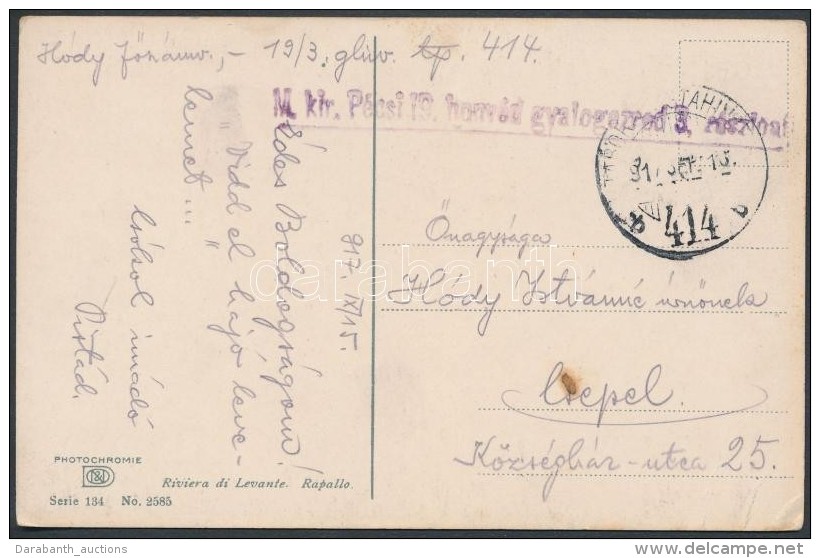 Hódy Főzámv,- 19/3. glúv. tp. 414.
M. kir. Pécsi 19. honvéd gyalogezred 3. részloal
TÁBORI
414
917. IX/15.
Édes Boldogságom!
"Vidd el hajó leve-
lemet"...
Csókol imádó
Pistád.
Őnagysága
Hódy Istvánné úrnőnek
Csepel.
Községház-utca 25.
PHOTOCHROMIE
Riviera di Levante. Rapallo.
Serie 134 No. 2585
carabanth
Darabanth_auctions
delcampe.net